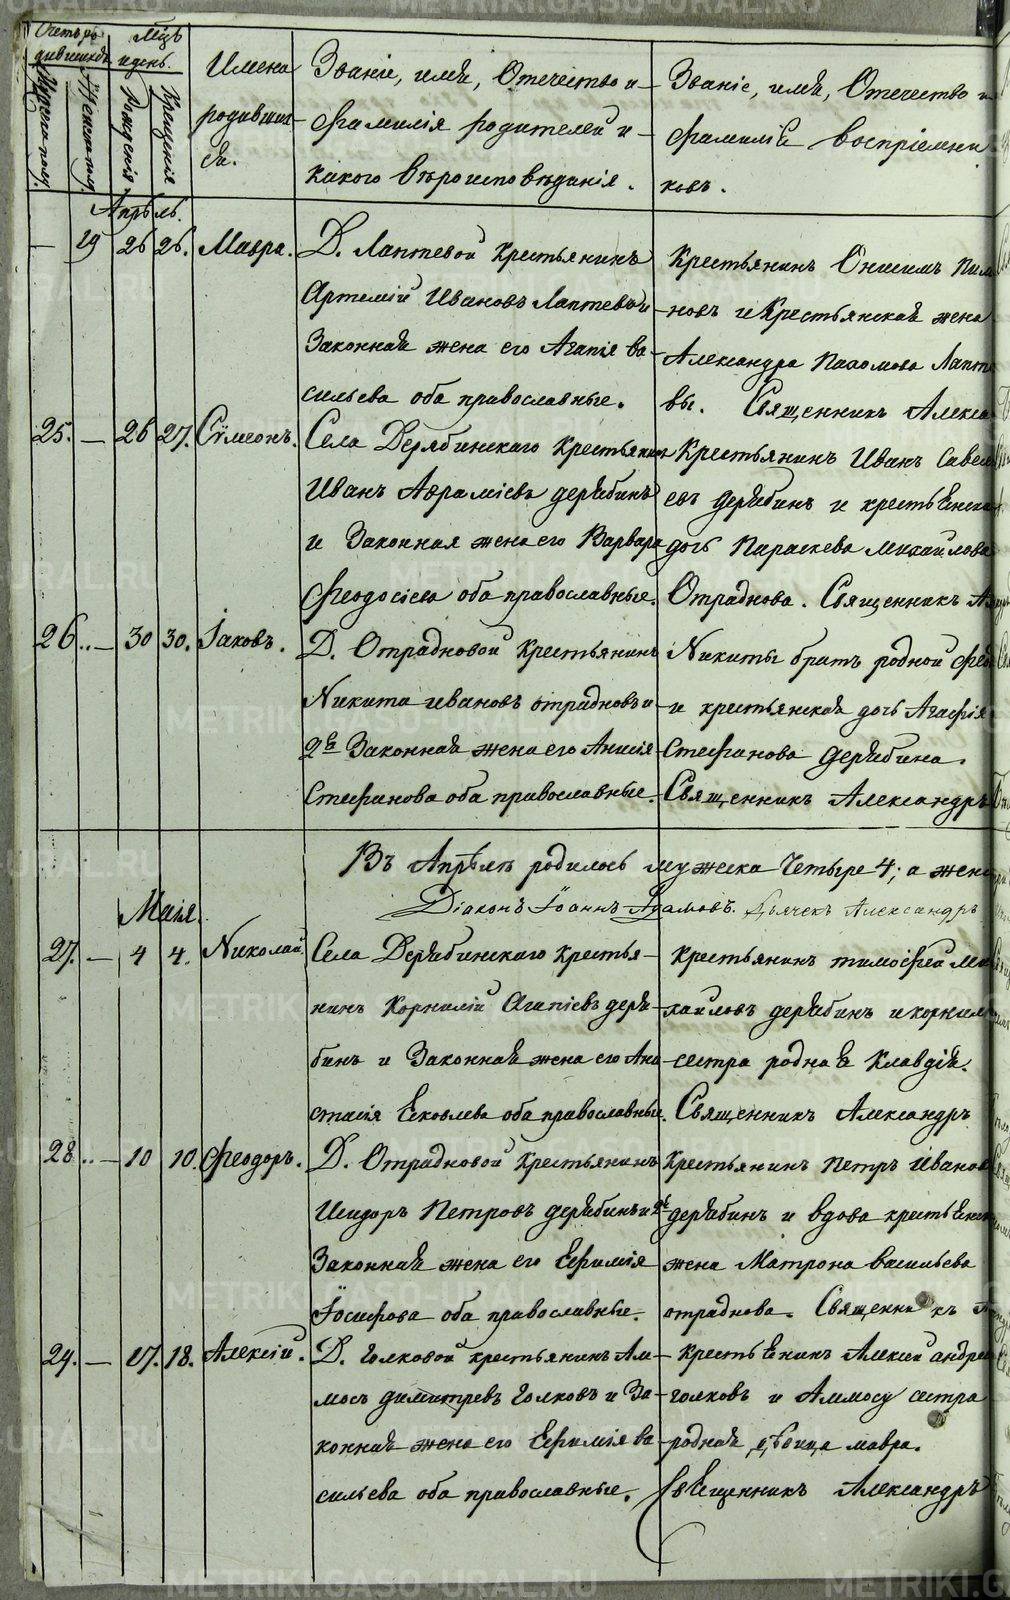 Счетъ родившихся
Мужеска полу.
Женска полу.
Мѣсяцъ и день.
Рожденія
Крещенія
Имена родивших-
ся.
Званіе, имя, Отечество и
фамилія родителей и
какого вѣроисповѣданія.
Званіе, имя, Отечество и
фамиліѧ воспріемни
ковъ.
Апрѣль.
— 19 26 26. Мавра.
Д. Лаптевой крестьянинъ
Артемій Ивановъ Лаптевъ и
Законная жена его Агапія ва-
сильева оба православные.
Крестьянинъ Онисимъ
новъ и крестьянская жена
Александра Пахомова Лапте
вы. Священникъ Алекса
25. — 26 27. Сѵмеонъ.
Села Дерябинскаго крестьянинъ
Иванъ Авраміевъ дерябинъ
и Законная жена его Варвара
Феодосіева оба православные.
Крестьянинъ Иванъ Савель
евъ дерябинъ и крестьѧнска
дочь Параскева михаилова
Отраднова. Священникъ А
26.. — 30 30. Іаковъ.
Д. Отрадновой крестьянинъ
Никита ивановъ отрадновъ и
2ѧ Законная жена его Анисія
Стефанова оба православные.
Никиты братъ родной Фео
и крестьянская дочь Агафія
Стефанова дерябина.
Священникъ Александръ
Въ Апрѣлѣ родилось мужеска Четыре 4; а жен
Діаконъ Іоаннъ Адамовъ. Дьячекъ Александръ
Маія.
27. — 4 4. Николай
Села Дерябинскаго крестья-
нинъ Корнилій Агапіевъ деря-
бинъ и Законная жена его Ана-
стасія Ѧковлева оба православны.
Крестьянинъ тимофей Ми
хаиловъ дерябинъ и корнил
сестра роднаѧ Клавдія.
Священникъ Александръ
28.. — 10 10. Феодоръ.
Д. Отрадновой Крестьянинъ
Исидоръ Петровъ дерябинъ и 2ѧ
Законная жена его Евфимія
Іосифова оба православные.
Крестьянинъ Петръ Иванов
дерябинъ и вдова крестьѧнск
жена Матрона Васильева
отраднова. Священникъ
29. — 17. 18. Алексій.
Д. Голковой крестьянинъ Ам-
мосъ димитревъ Голковъ и За-
конная жена его Евфимія ва-
сильева оба православные.
Крестьѧнинъ Алексей андрее
голковъ и Аммосу сестра
родная дѣвица мавра.
Свѧщенникъ Александръ
METRIKI.GASO-URAL.RU